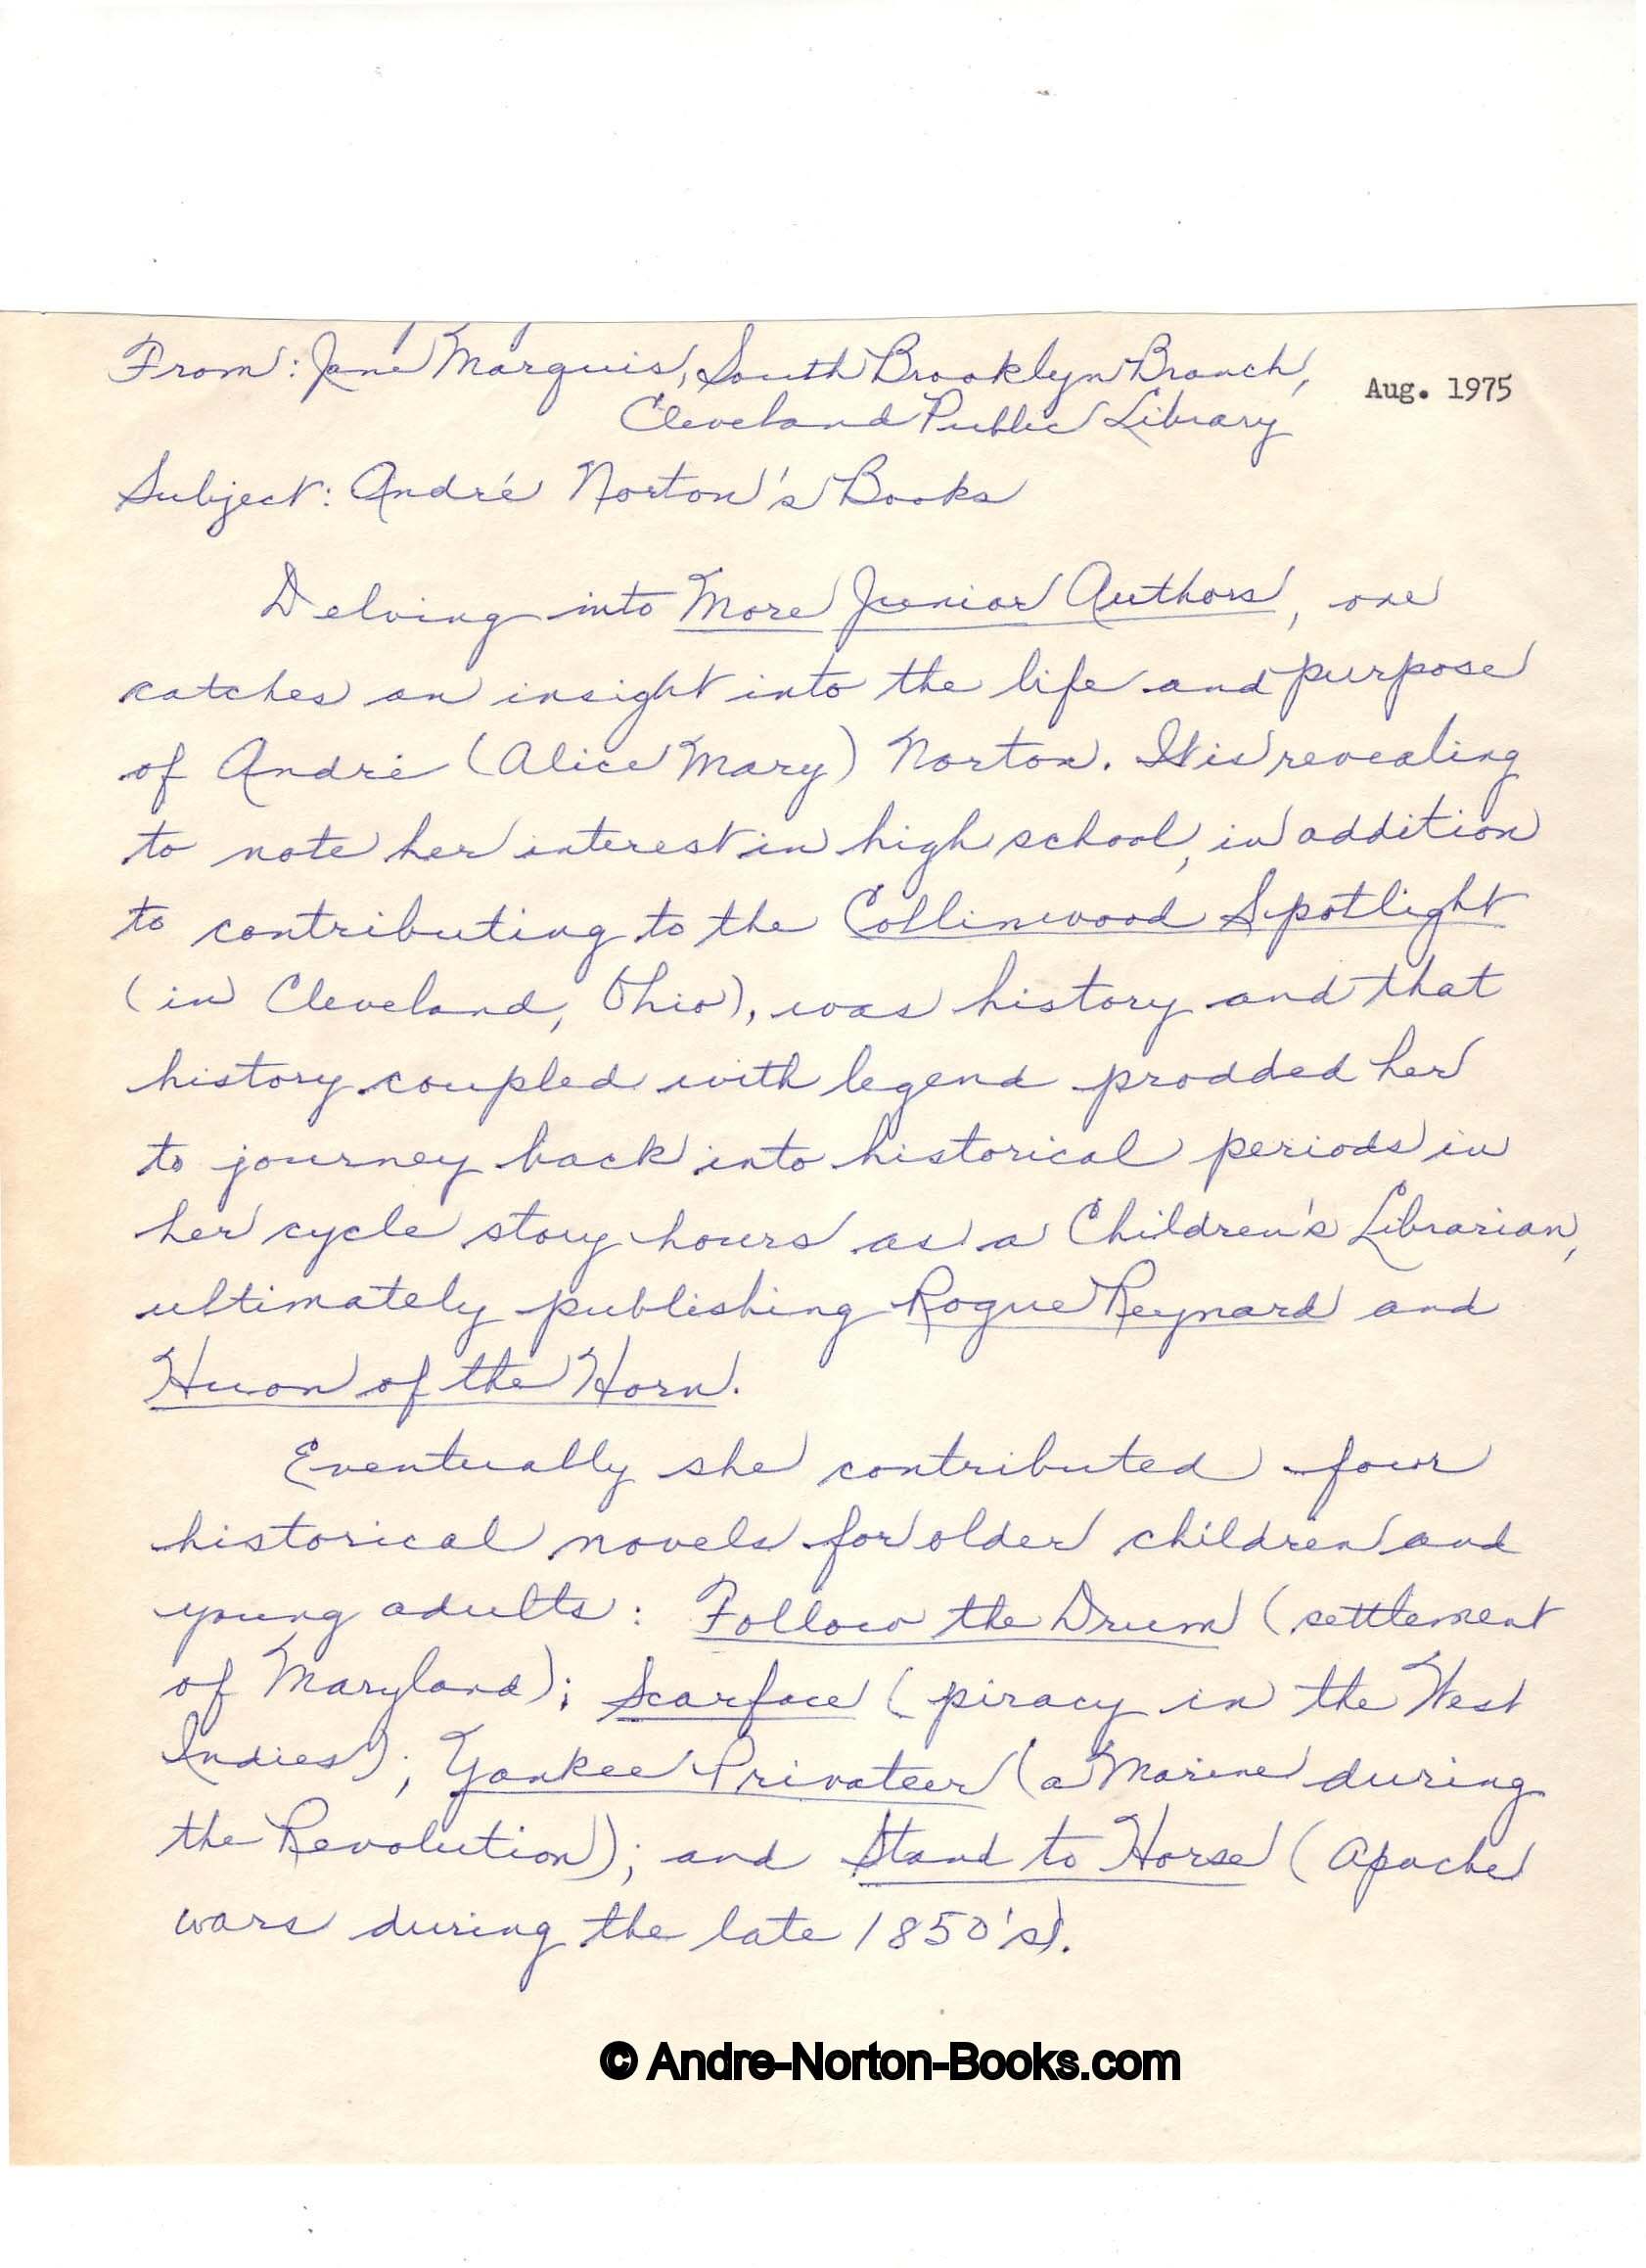 From: Jane Marquis, South Brooklyn Branch,
Cleveland Public Library
Aug. 1975
Subject: André Norton's Books
Delving into More Junior Authors, one
catches an insight into the life and purpose
of André (Alice Mary) Norton. It is revealing
to note her interest in high school, in addition
to contributing to the Collinwood Spotlight
(in Cleveland, Ohio), was history and that
history coupled with legend prodded her
to journey back into historical periods in
her cycle story hours as a Children's Librarian,
ultimately publishing Rogue Reynard and
Huon of the Horn.
Eventually she contributed four
historical novels for older children and
young adults: Follow the Drum (settlement
of Maryland); Scarface (piracy in the West
Indies); Yankee Privateer (a Marine during
the Revolution); and Stand to Horse (Apache
wars during the late 1850's).
© Andre-Norton-Books.com